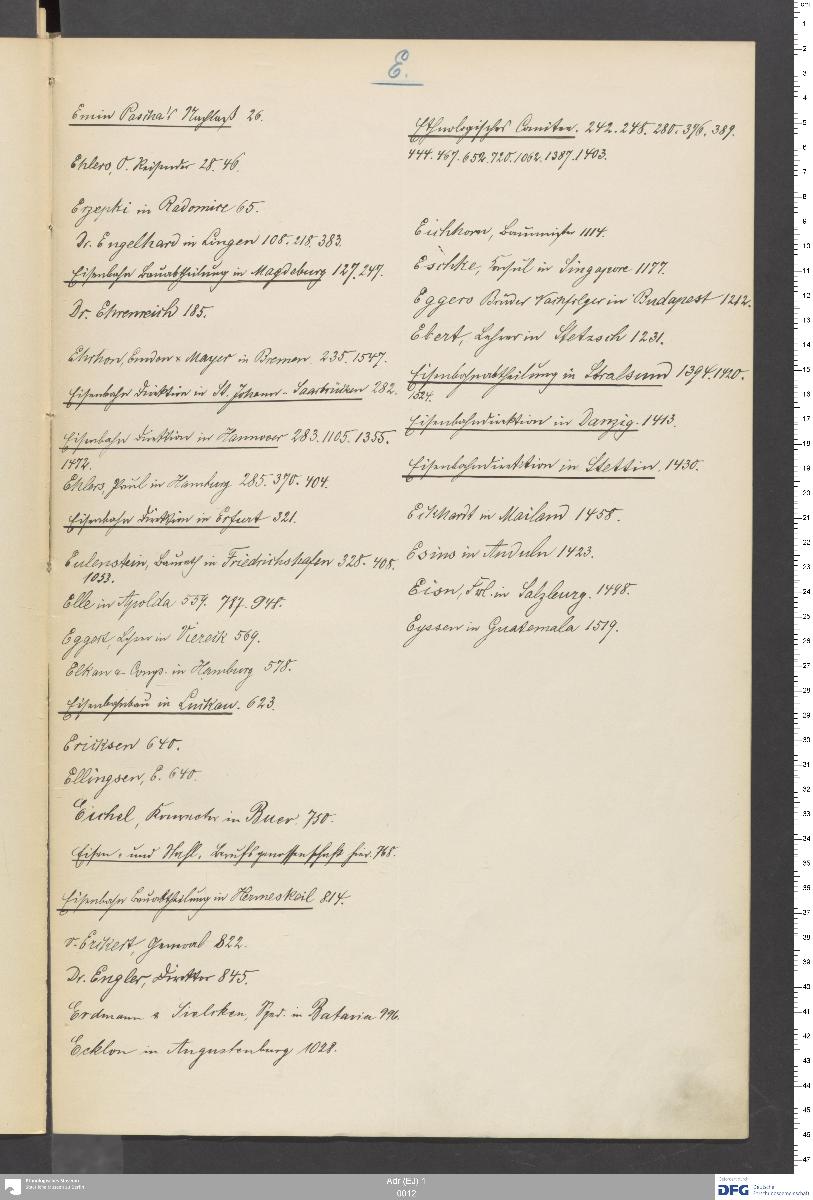 E.
Emin Pascha's Nachlaß 26.
Ehlers, O. Reisender 28. 46.
Erzepki in Radomice 65.
Dr. Engelhard in Lingen 108. 218. 383.
Eisenbahn Bauabtheilung in Magdeburg 127. 247.
Dr. Ehrenreich 185.
Ehrhon, Emden & Mayer in Bremen. 235. 1547.
Eisenbahn Direktion in St. Johann-Saarbrücken 282.
Eisenbahn Direktion in Hannover 283. 1105. 1355.
1472.
Ehlers, Paul in Hamburg 285. 370. 404.
Eisenbahn Direktion in Erfurt 321.
Eulenstein, Baurath in Friedrichshafen 328. 408.
1053.
Elle in Apolda 559. 787. 948.
Eggert, Lehrer in Viereck 569.
Elkan & Comp. in Hamburg 578.
Eisenbahnbau in Luckau. 623.
Ericksen 640.
Ellingsen, E. 640.
Eichel, in Buer. 750.
Eisen- und Stahl-Berufsgenossenschaft hier. 768.
Eisenbahn Bauabtheilung in Hermeskeil 814.
v. Erckert, General 822.
Dr. Engler, Direktor 845.
Erdmann & Sielcken, Sped. in Batavia 996.
Ecklon in Augustenburg 1028.
Ethnologisches Comitee. 242. 248. 280. 376. 389.
444. 467. 652. 720. 1062. 1387. 1403.
Eichhorn, Baumeister 1114.
Eschke, Konsul in Singapore 1177.
Eggers Brüder Nachfolger in Budapest 1212.
Ebert, Lehrer in Stetzsch 1231.
Eisenbahnabtheilung in Stralsund 1394. 1420.
1524.
Eisenbahndirektion in Danzig. 1413.
Eisenbahndirektion in Stettin. 1430.
Eckhardt in Mailand 1458.
Esins in Anduln 1423.
Eisn, Frl. in Salzburg. 1498.
Eyssen in Guatemala 1519.
Ethnologisches Museum
Staatliche Museen zu Berlin
Adr (EJ) 1
0012
DFG Deutsche
Forschungsgemeinschaft